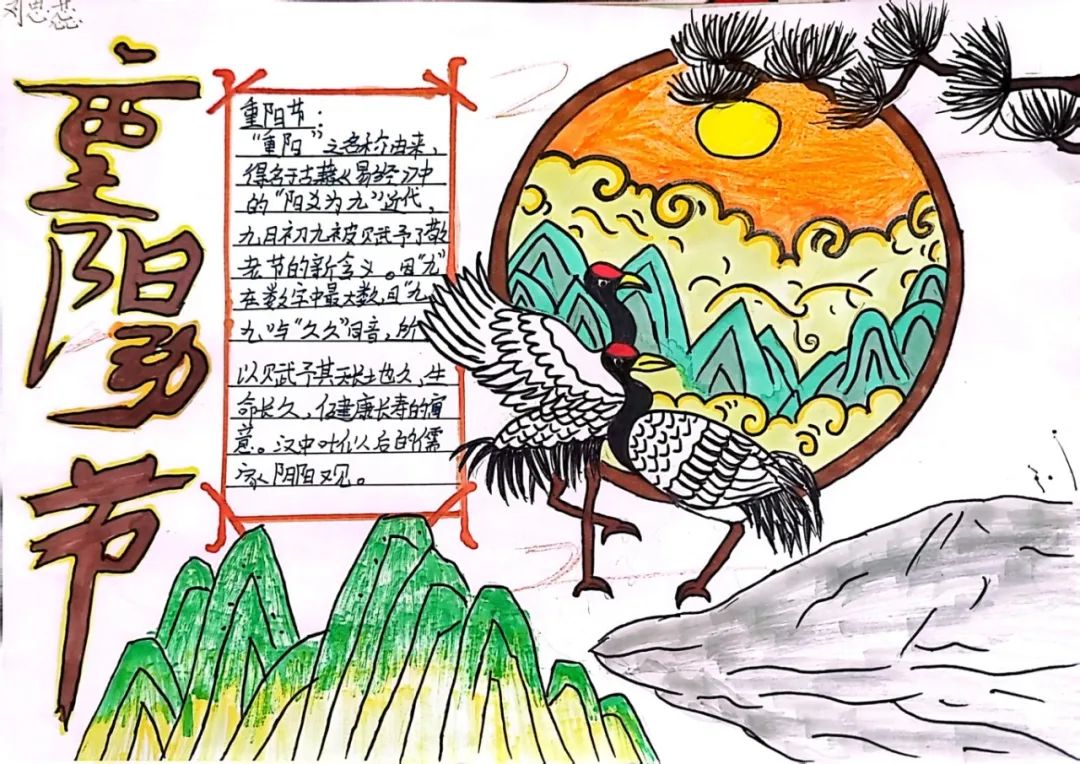 刘思蕊
重阳节
重阳节：
“重阳”之名称由来，
得名于古籍《易经》中
的“阳爻为九”近代，
九月初九被赋予了敬
老节的新含义。因“九”
在数字中最大数，且“九
九”与“久久”同音，所
以赋予其天长地久，生
命长久，健康长寿的寓
意。汉中叶以后的儒
家阴阳观。